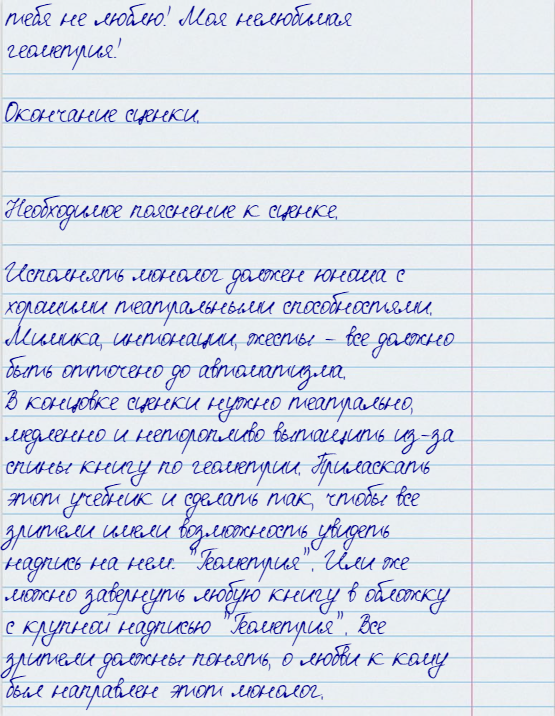 тебя не люблю! Моя нелюбимая
геометрия!
Окончание сценки.
Необходимое пояснение к сценке.
Исполнять монолог должен юноша с
хорошими театральными способностями.
Мимика, интонации, жесты - все должно
быть отточено до автоматизма.
В концовке сценки нужно театрально,
медленно и неторопливо вытащить из-за
спины книгу по геометрии. Приласкать
этот учебник и сделать так, чтобы все
зрители имели возможность увидеть
надпись на нем: "Геометрия". Или же
можно завернуть любую книгу в обложку
с крупной надписью "Геометрия". Все
зрители должны понять, о любви к кому
был направлен этот монолог.